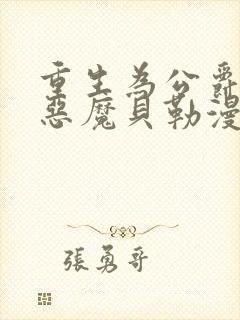 重生為公爵
惡魔貝勒漫
張勇哥